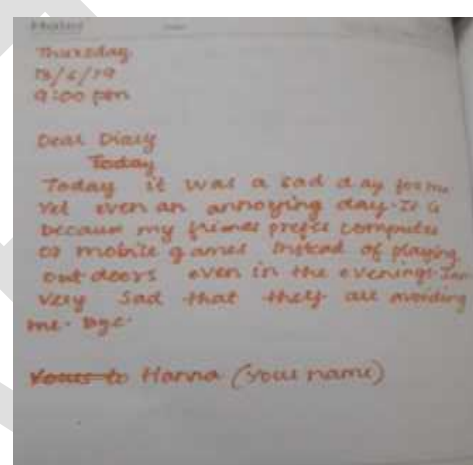 Thursday
13/6/19
9:00 pm
Dear Diary
Today
Today it was a sad day for me
Yet even an annoying day. It is
because my frines prefer computer
or mobile games instead of playing
outdoors even in the evenings. I am
very sad that they are avoiding
me. Bye.
Yours to Hanna (your name)